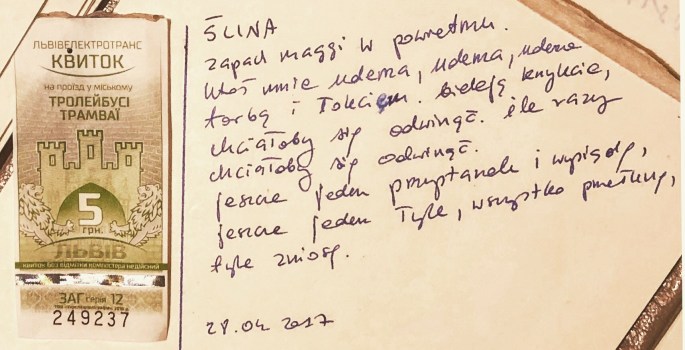 ЛЬВІВЕЛЕКТРОТРАНС
КВИТОК
на проїзд у міському
ТРОЛЕЙБУСІ
ТРАМВАЇ
5
грн.
ЛЬВІВ
квиток без відмітки компостера недійсний
ЗАГ серія 12
249237
ŚLINA
zapach maggi w powietrzu.
ktoś mnie uderza, uderza, uderza
torbą i łokciem. bieleją knykcie,
chciałoby się odwinąć. ile razy
chciałoby się odwinąć.
jeszcze jeden przystanek i wysiądę,
jeszcze jeden tylko, wszystko przełknę,
tyle zniosę.
28.04 2017